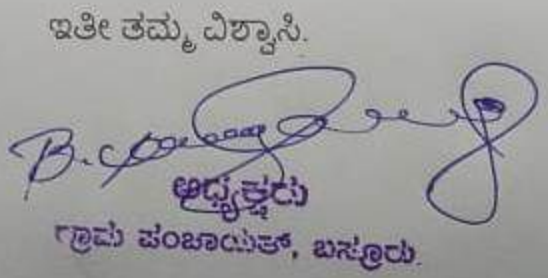 ಇತೀ ತಮ್ಮ ವಿಶ್ವಾಸಿ.
ಅಧ್ಯಕ್ಷರು
ಗ್ರಾಮ ಪಂಚಾಯತ್, ಬಸ್ರೂರು.